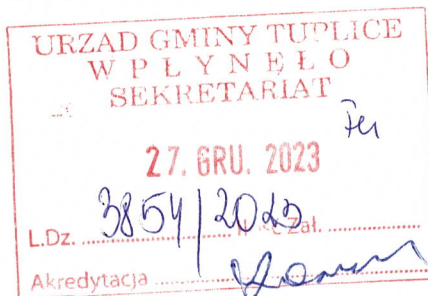 URZĄD GMINY TUPLICE
WPŁYNĘŁO
SEKRETARIAT
27. GRU. 2023
L.Dz. 3854/2023 Zał.
Akredytacja